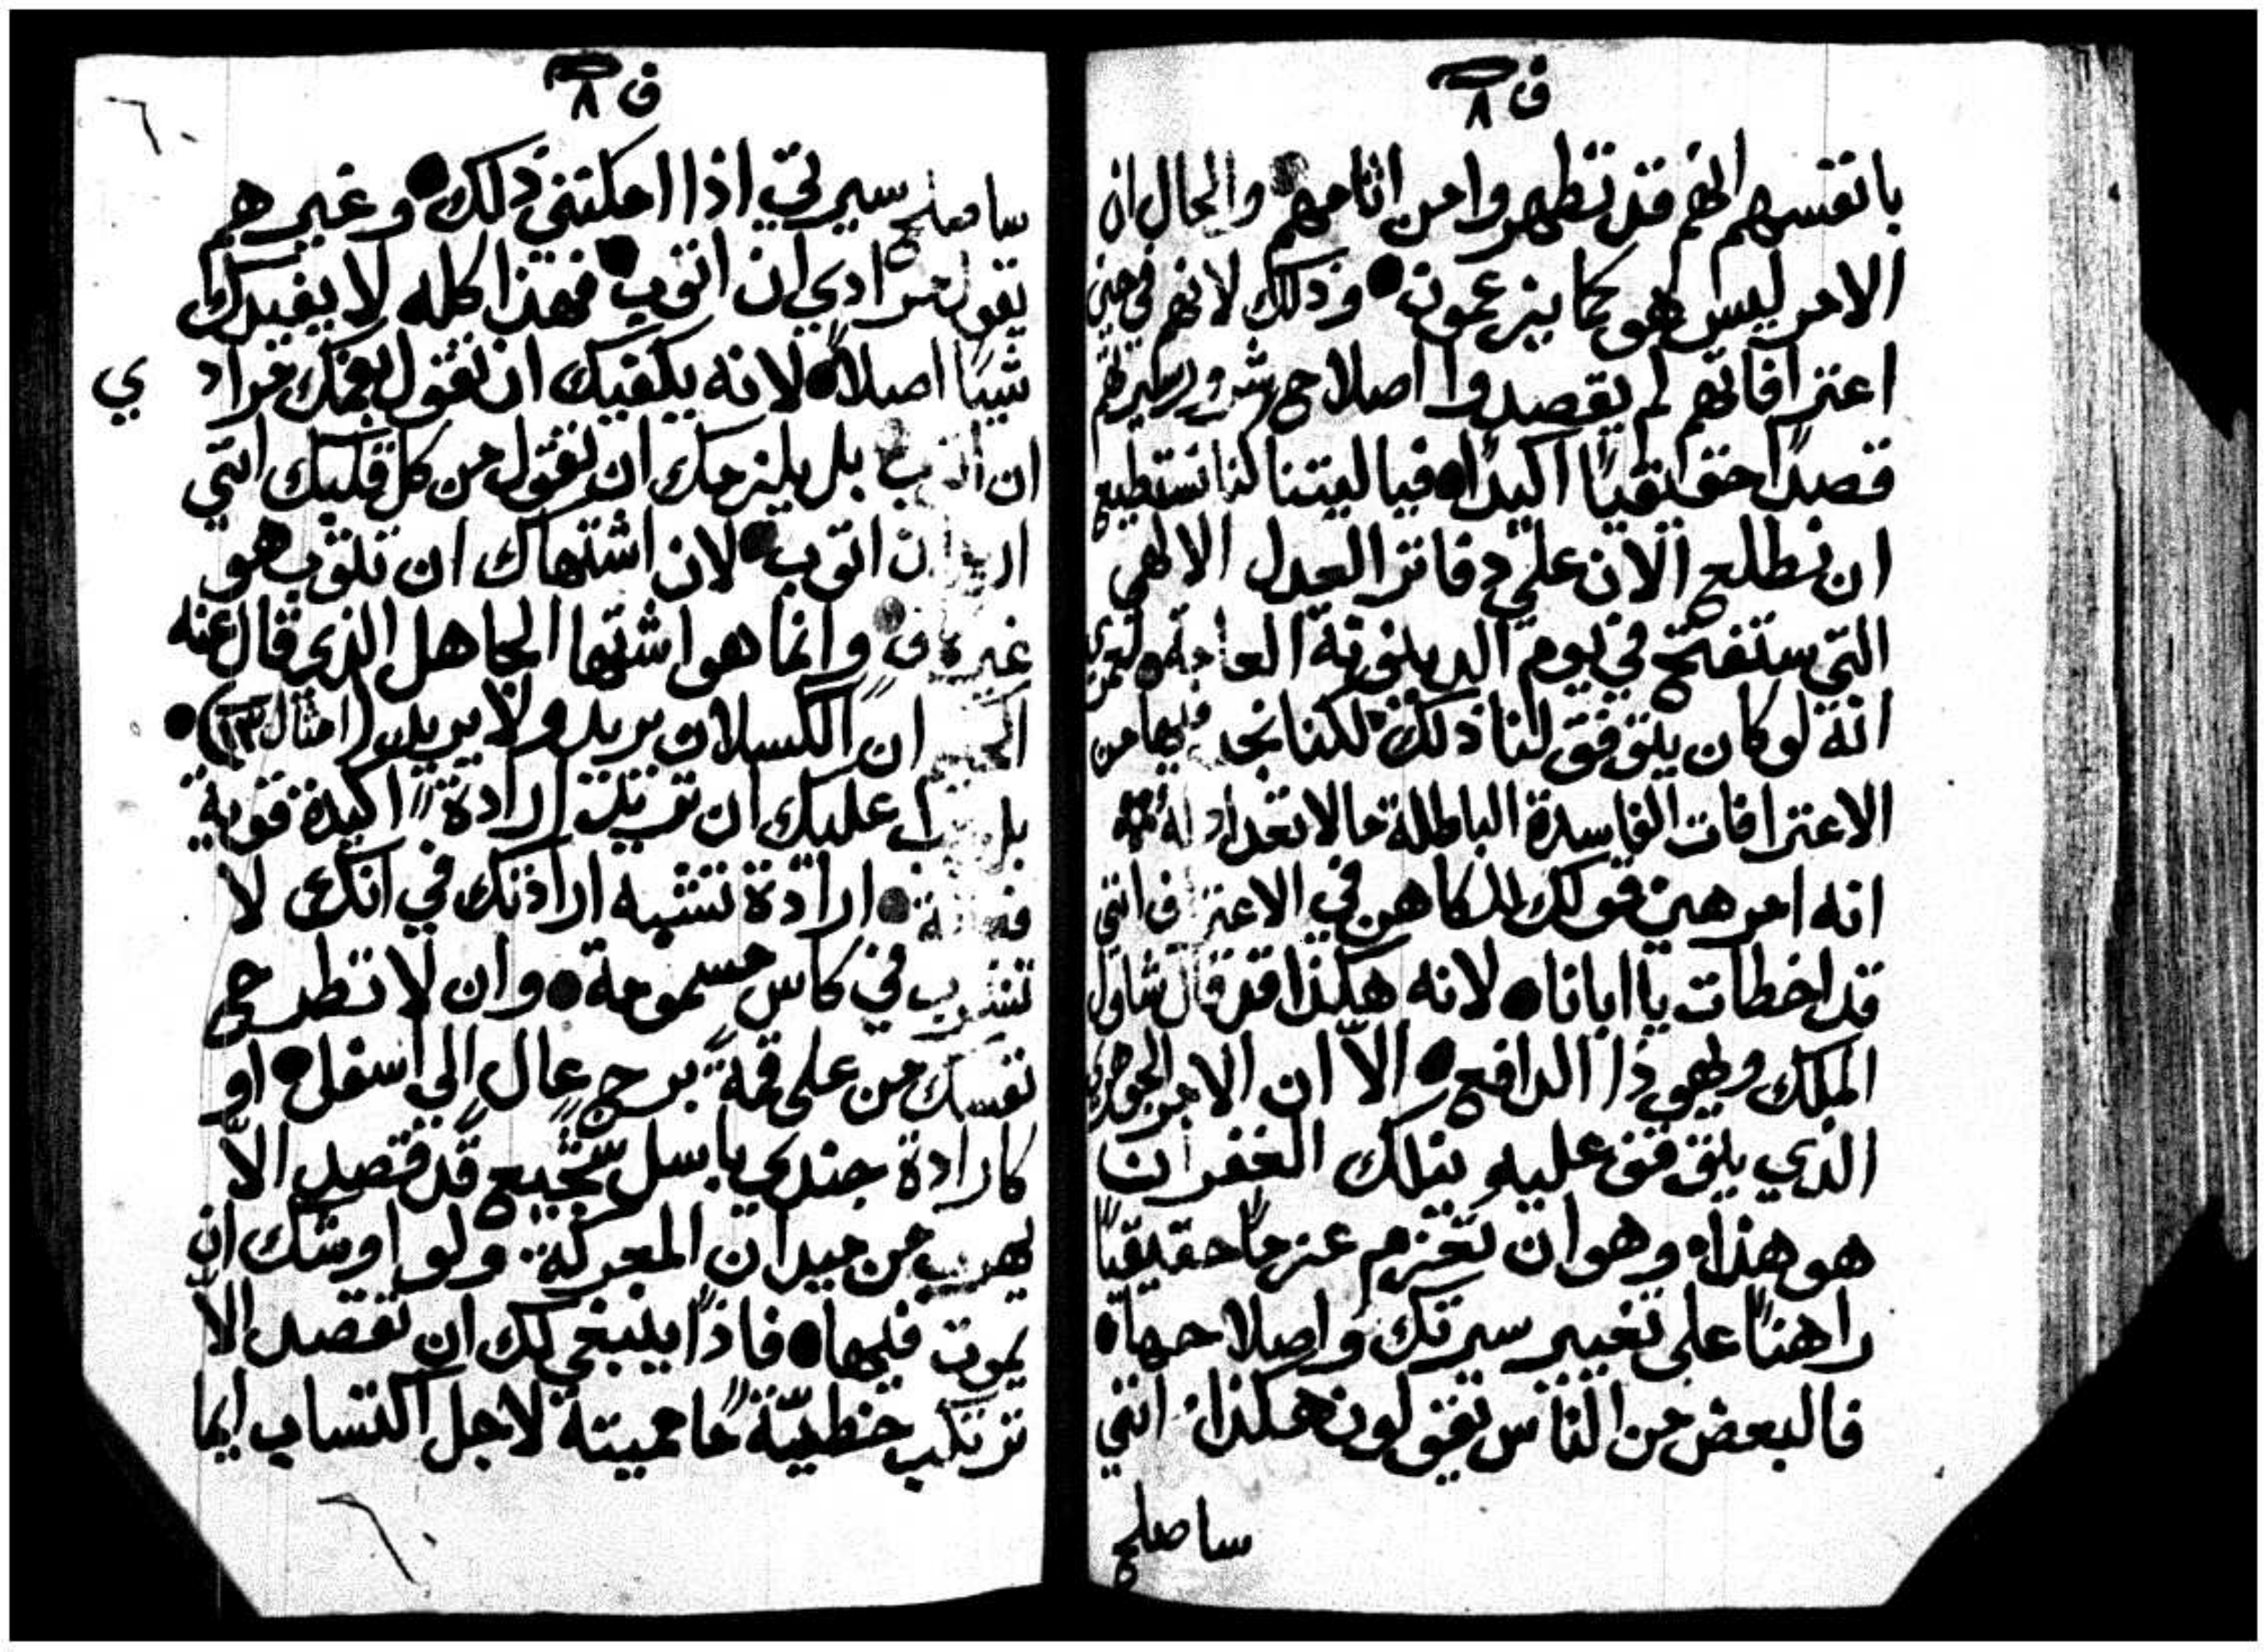 ف ٨
بانفسهم انهم قد تطهروا من اثامهم والحال ان
الامر ليس هو كما يزعمون ● وذلك لانهم في حين
اعترافاتهم لم يقصدوا اصلاح شرور سيرتهم
قصدًا حقيقيًا اكيدًا ● فيا ليتنا كنا نستطيع
ان نطلع الان علي دفاتر العدل الالهي
التي ستفتح في يوم الدينونة العامة ●
انه لو كان يتوفق لنا ذلك لكنا نجد فيها من
الاعترافات الفاسدة الباطلة ما لا تعداد له
انه امر هين قولك للكاهن في الاعتراف انني
قد اخطات يا ابانا ● لانه هكذا قد قال شاول
الملك ويهوذا الدافع ● الاّ ان الامر الجوهري
الذي يتوقف عليه نيلك الغفران
هو هذا ● وهو ان تعزم عزمًا حقيقيًا
راهنًا علي تغيير سيرتك واصلاحها ●
فالبعض من الناس يقولون هكذا انني
ساصلح
ف ٨
ساصلح سيرتي اذا امكنني ذلك ● وغيرهم
يقول مرادي ان اتوب ● فهذا كله لا يفيدك
شيئا اصلاً ● لانه يكفيك ان تقول بفمك مراد ي
ان اتوب بل يلزمك ان تقول من كل قلبك انني
اريد ان اتوب ● لان اشتهاك ان تتوب هو
غير كاف وانما هو اشتها الجاهل الذي قال عنه
الحكيم ان الكسلان يريد ولا يريد (امثال ١٣) ●
بل يجب عليك ان تريد ارادة اكيدة قوية
ارادة تشبه ارادتك في انك لا
تشرب في كاس مسمومة ● وان لا تطرح
نفسك من على قمة برج عال الي اسفل ● او
كارادة جندي باسل شجيع قد قصد الاّ
يهرب من ميدان المعركة ولو اوشك ان
يموت فيها ● فاذًا ينبغي لك ان تقصد الاّ
ترتكب خطيّة ما مميتة لاجل اكتساب ايما